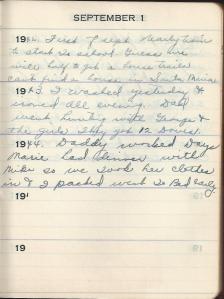 SEPTEMBER 1
1942. First Sept nearly time
to start to school. Guess we
will have to get a house trailer
cant find a house in Santa Maria
1943. I washed yesterday &
ironed all evening. Dad
went hunting with George &
the girls They got 12 Doves.
1944. Daddy worked Days
Marie had dinner with
Mike so we took her clothes
in & I packed went to Bed early.
19
19